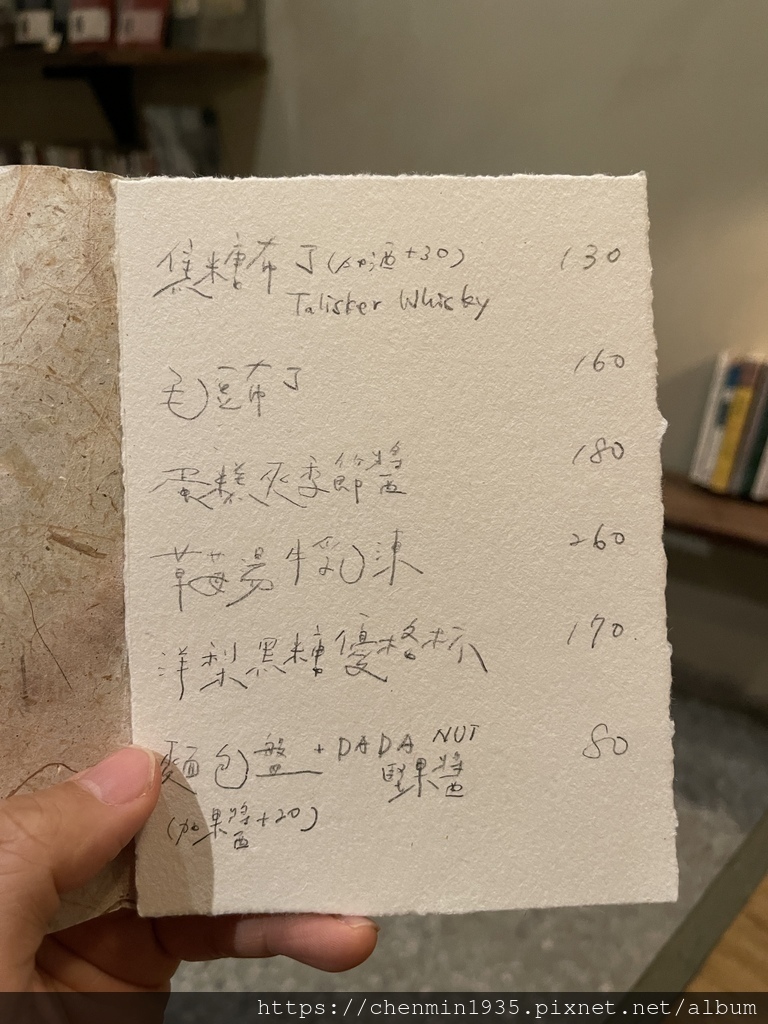 焦糖布丁(加酒+30) 130
Talisker Whisky
毛豆布丁 160
蛋糕夾季節醬 180
草莓湯牛乳凍 260
洋梨黑糖優格杯 170
麵包盤+DADA NUT 80
堅果醬
(加果醬+20)
https://chenmin1935.pixnet.net/album